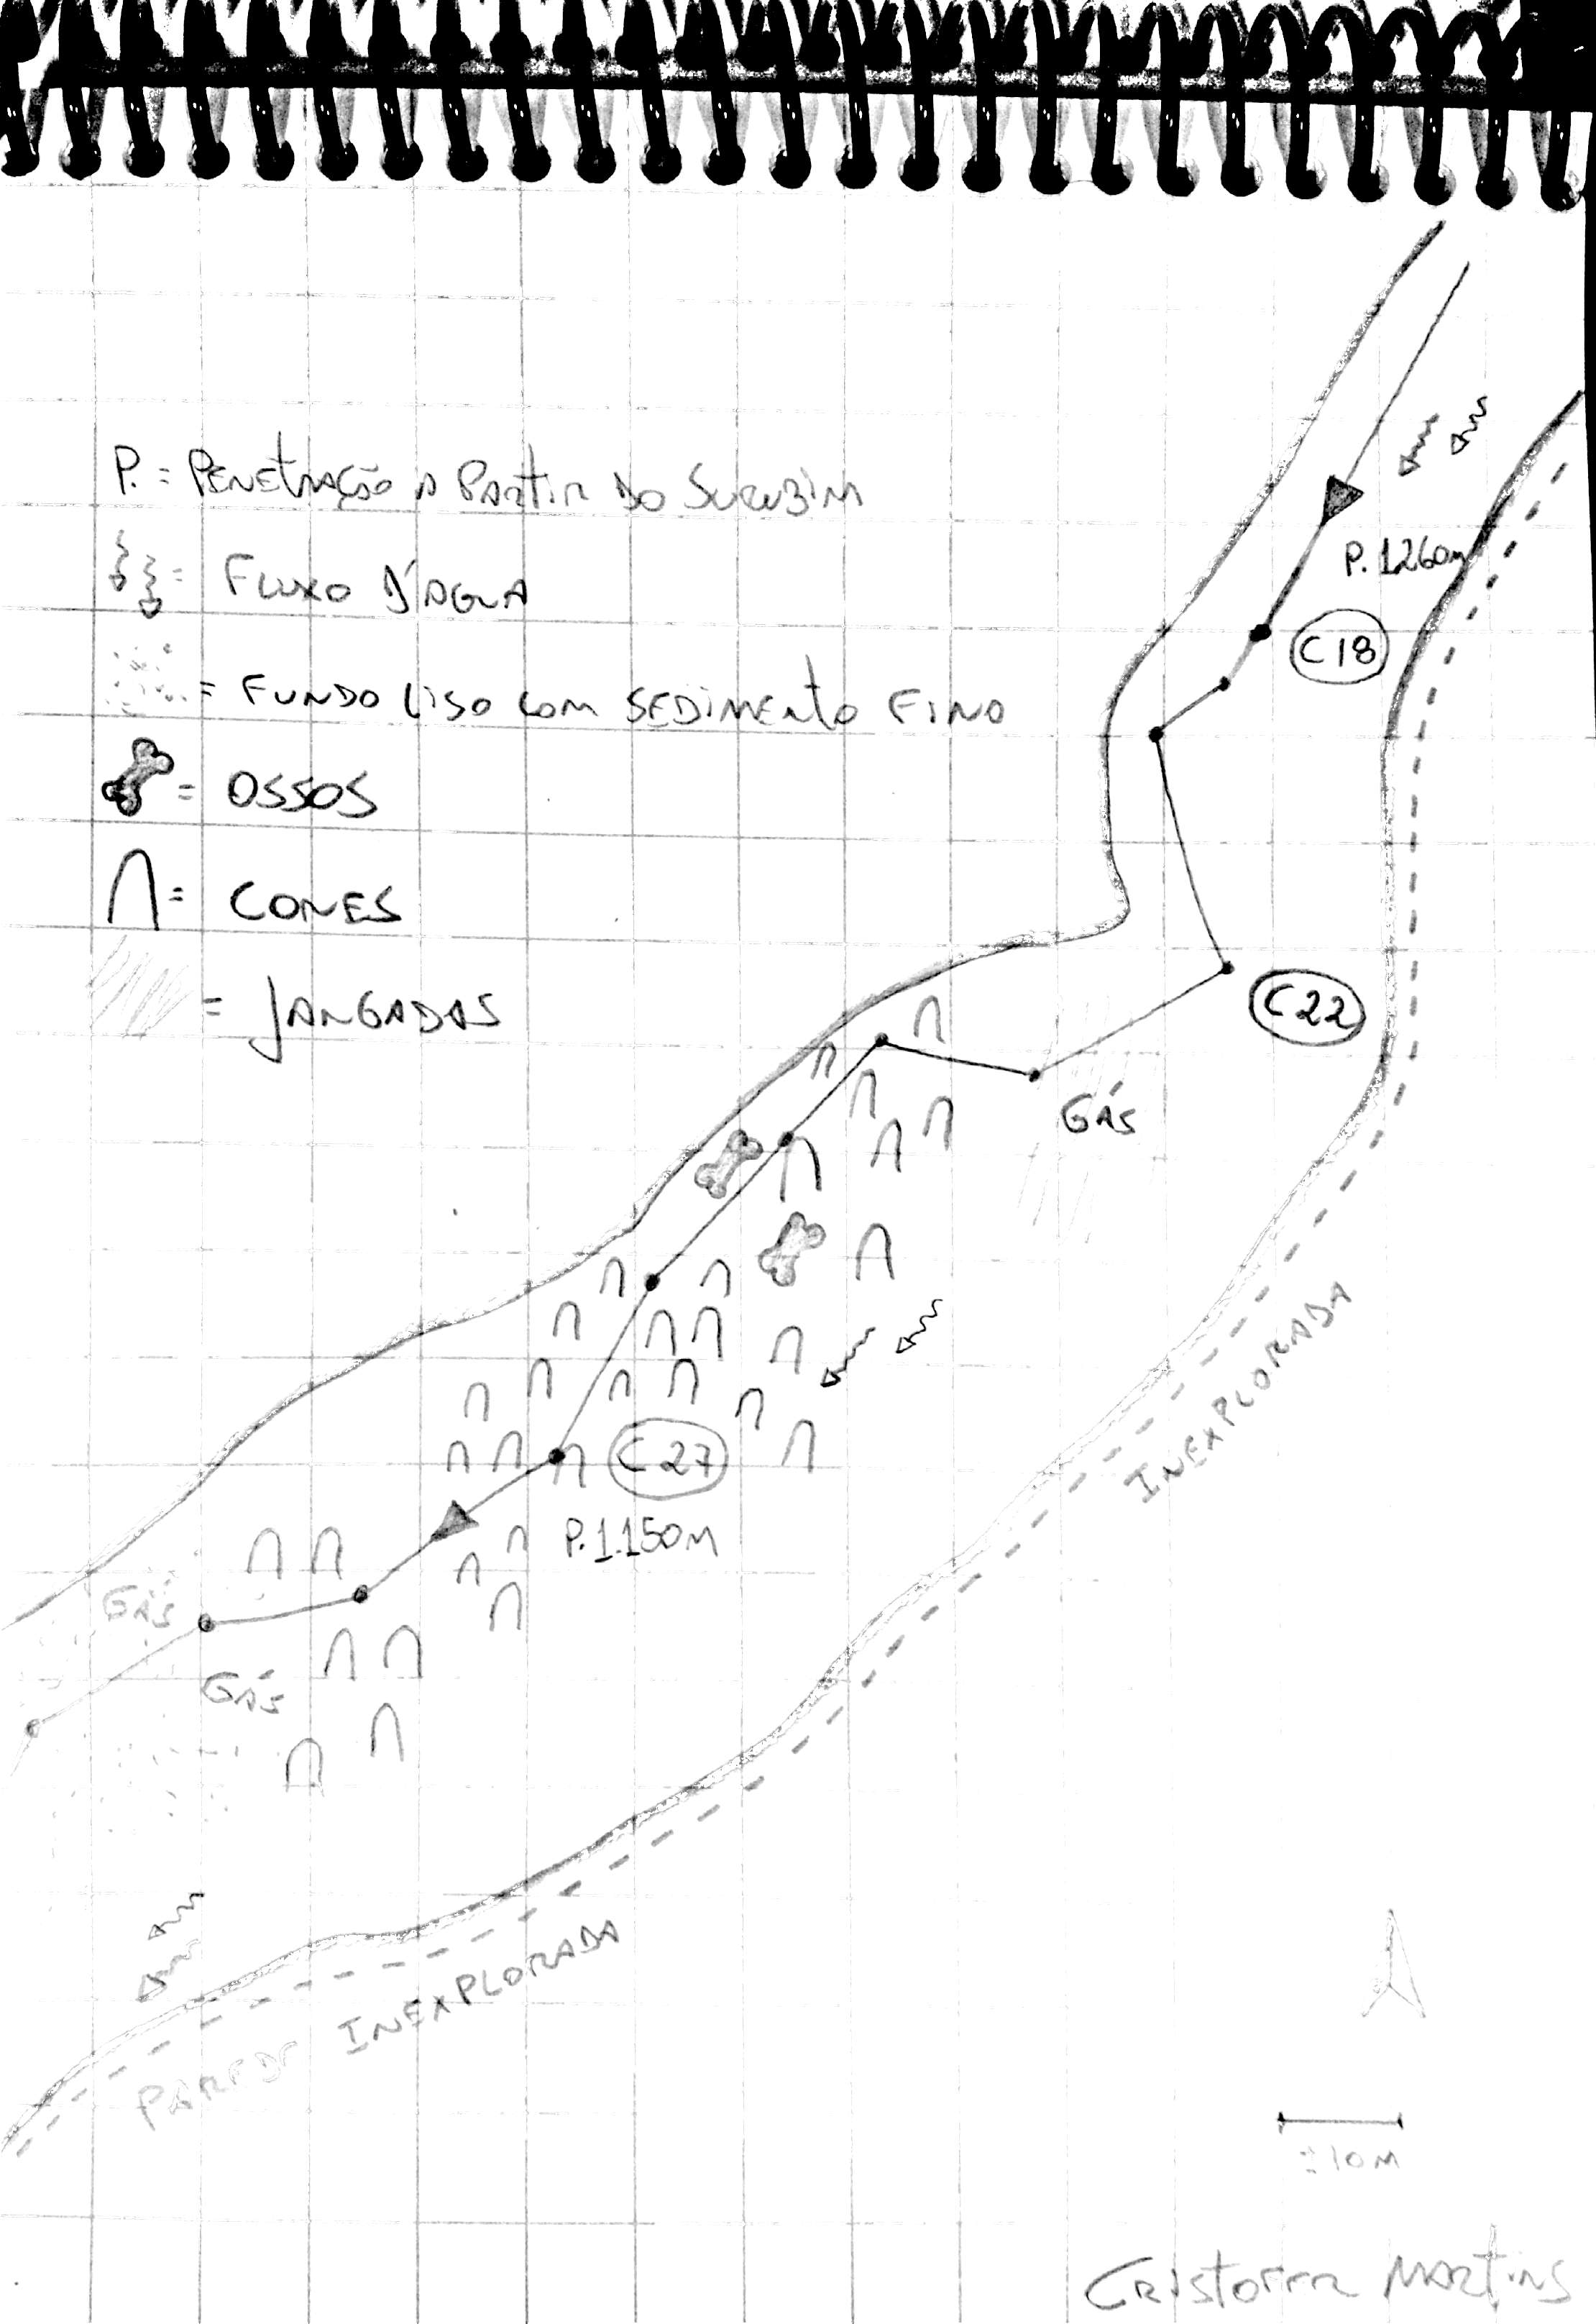 P. = PENETRAÇÃO A PARTIR DO SUCUBIM
= FLUXO D'ÁGUA
= FUNDO LISO COM SEDIMENTO FINO
= OSSOS
= CONES
= JANGADAS
P. 1260m
C18
C22
GÁS
INEXPLORADA
C27
P. 1.150M
GÁS
GÁS
PAREDE INEXPLORADA
= 10M
CRISTOFER MARTINS